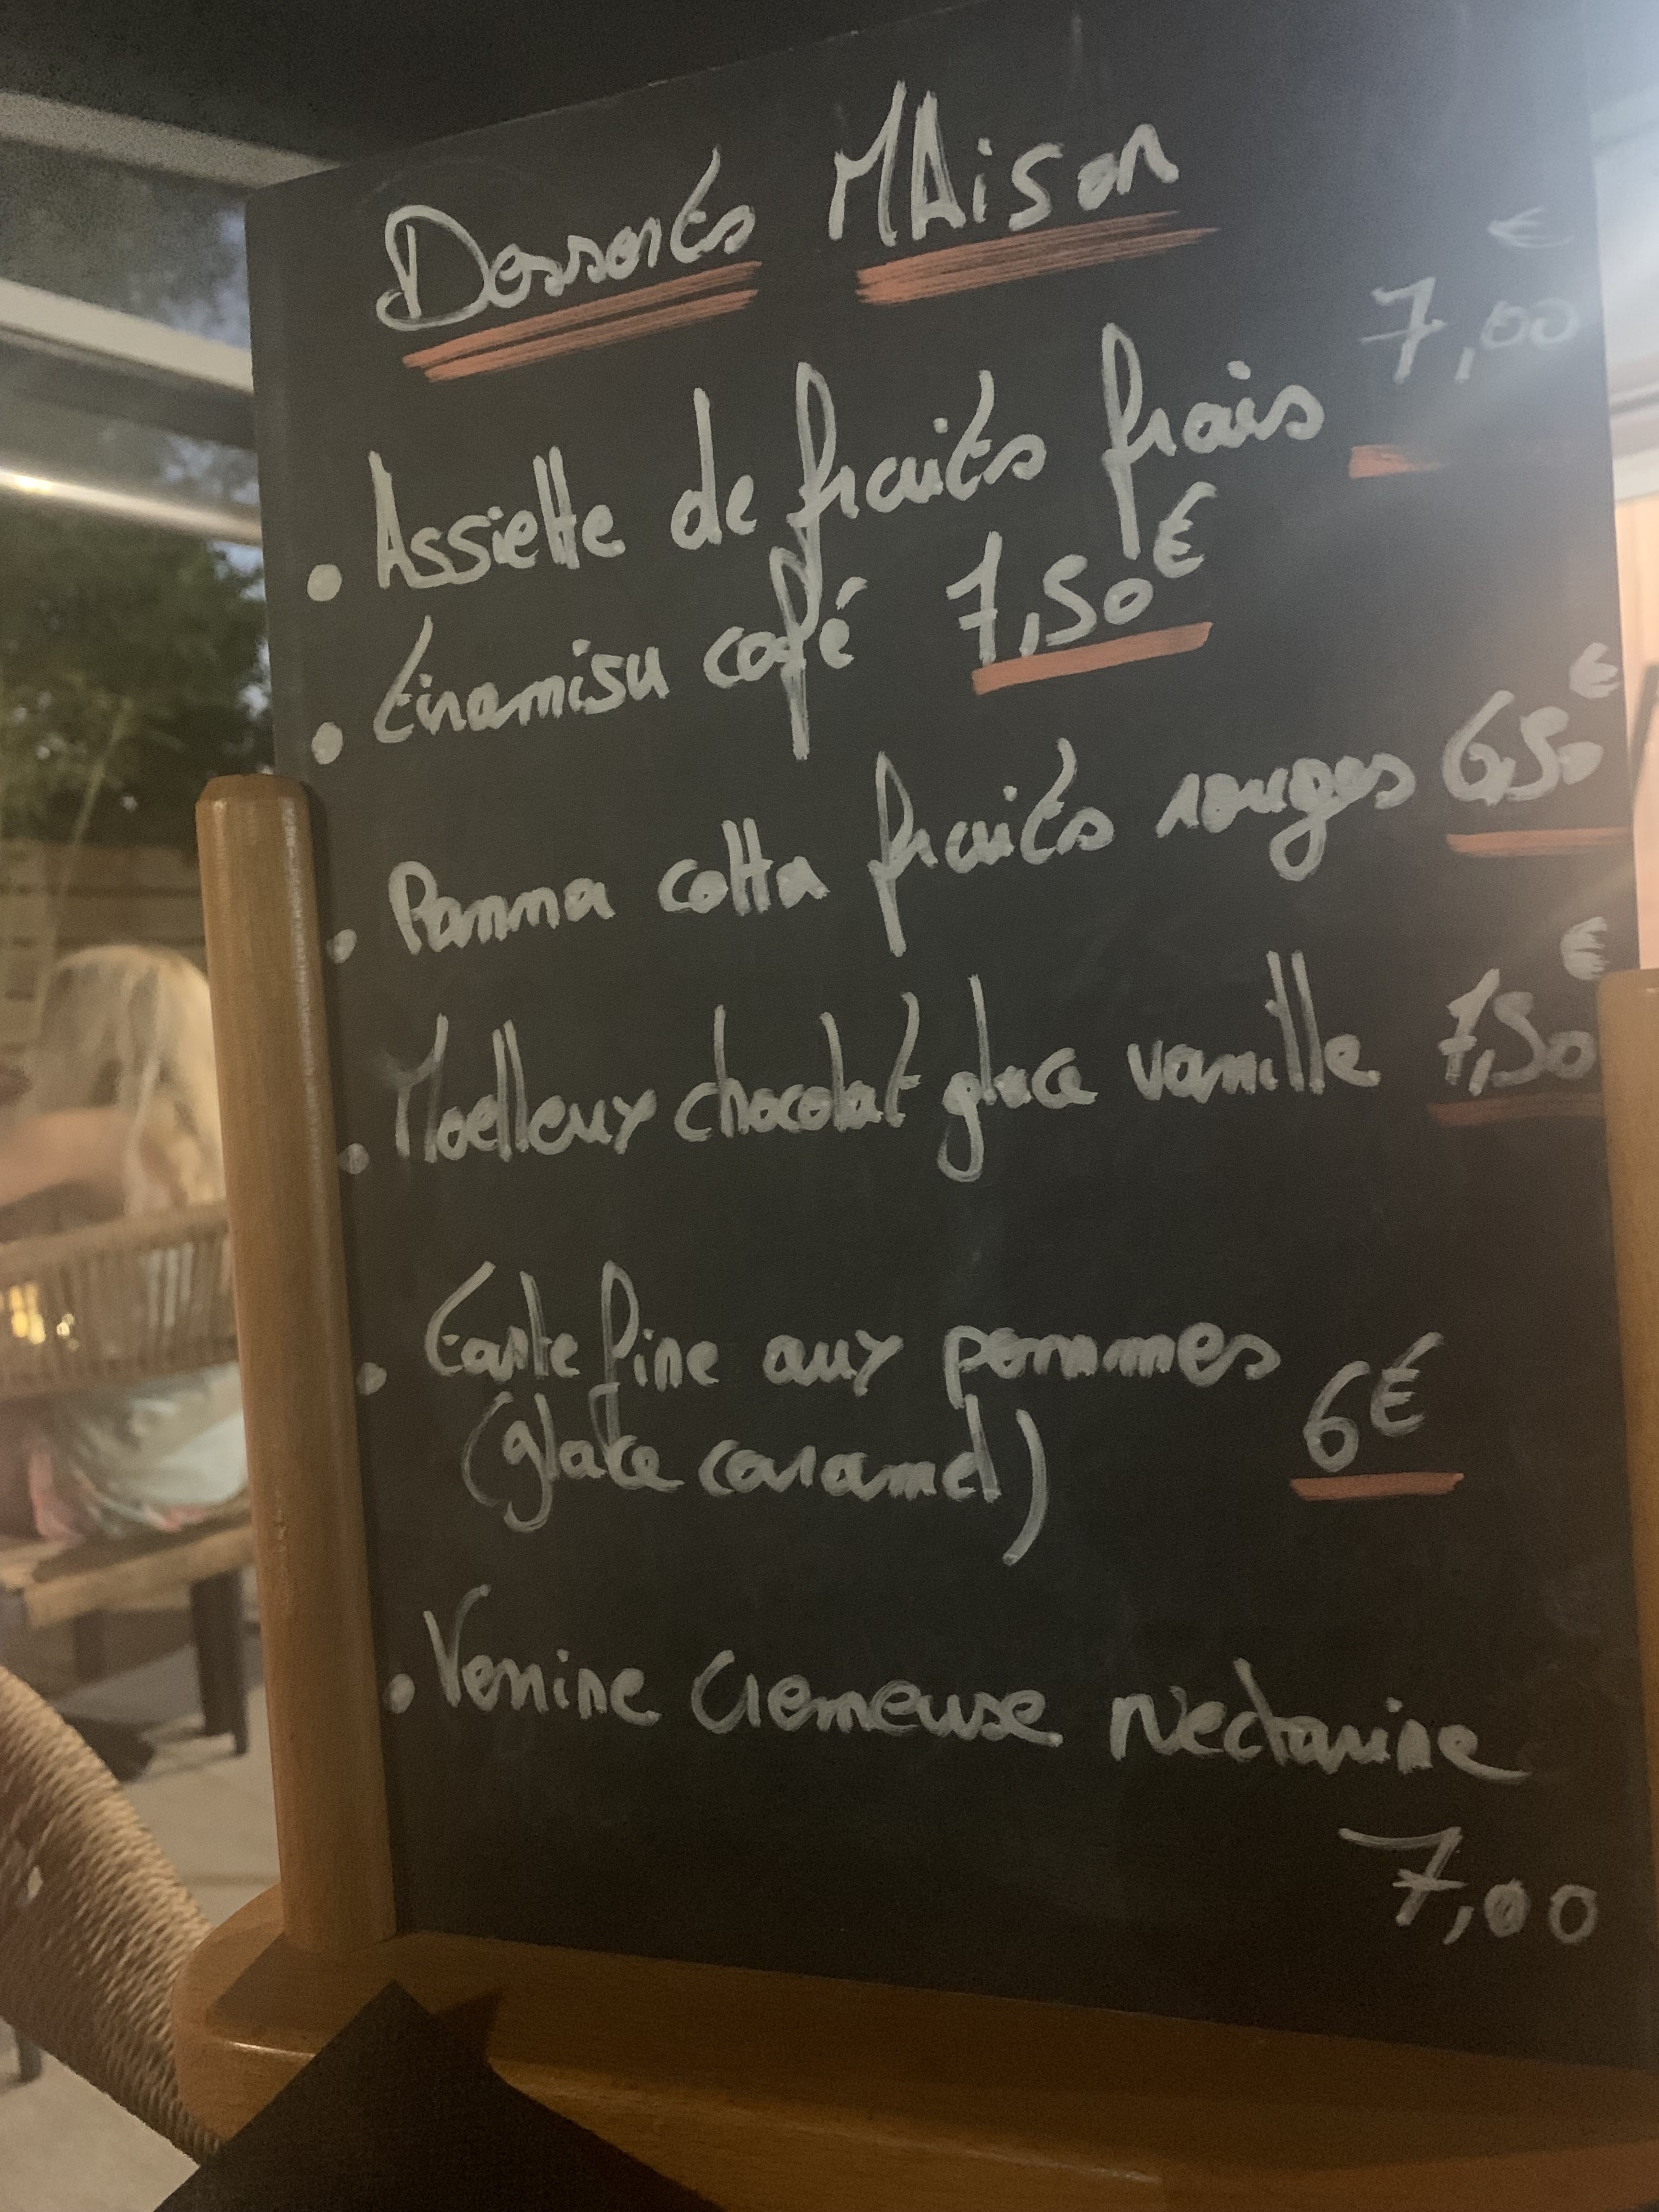 Desserts MAison
• Assiette de fruits frais 7,00 €
• tiramisu café 7,50 €
• Panna cotta fruits rouges 6,50 €
• Moelleux chocolat glace vanille 7,50 €
• tarte fine aux pommes
(glace caramel) 6 €
• Verrine Cremeuse Nectarine
7,00